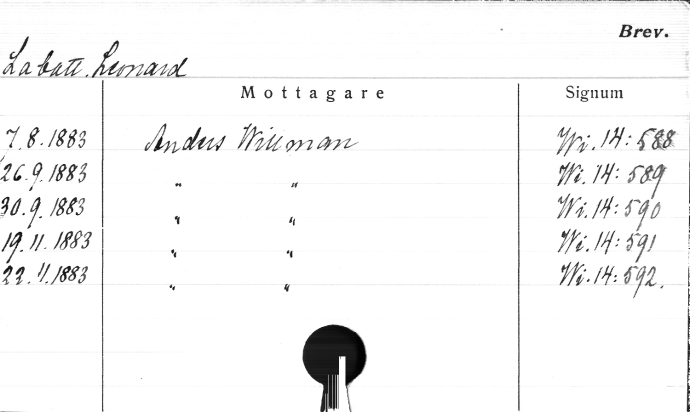 Brev.
Labatt, Leonard
Mottagare Signum
7.8.1883 Anders Willman Wi.14:588
26.9.1883 " " Wi.14:589
30.9.1883 " " Wi.14:590
19.11.1883 " " Wi.14:591
22.11.1883 " " Wi.14:592.